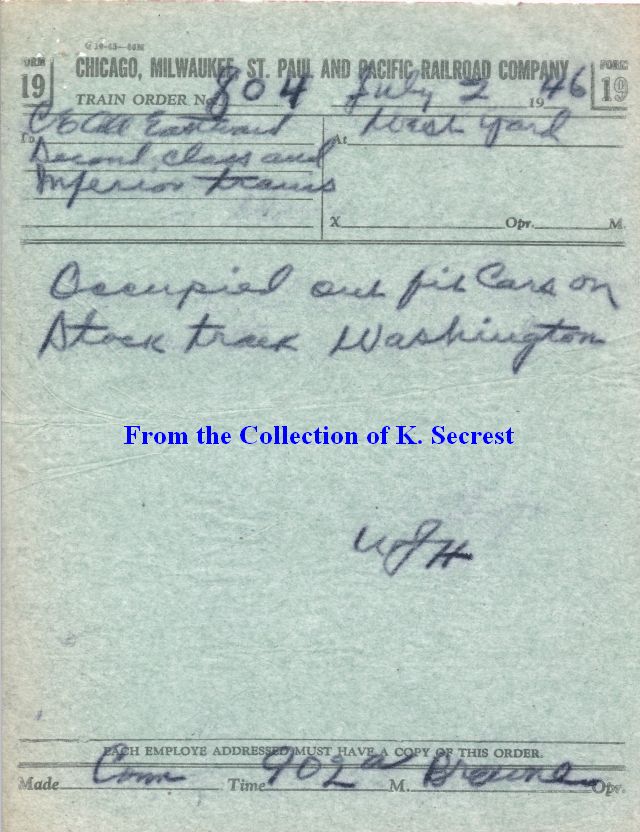 G 10-43-44M
FORM 19 CHICAGO, MILWAUKEE, ST. PAUL AND PACIFIC RAILROAD COMPANY FORM 19
TRAIN ORDER No. 804 July 2 1946
To C&E All Eastward At West Yard
Second class and
Inferior trains
X Opr. M.
Occupied out fit Cars on
Stock track Washington
From the Collection of K. Secrest
EACH EMPLOYE ADDRESSED MUST HAVE A COPY OF THIS ORDER.
Made Com Time 902 a M. Browne Opr.